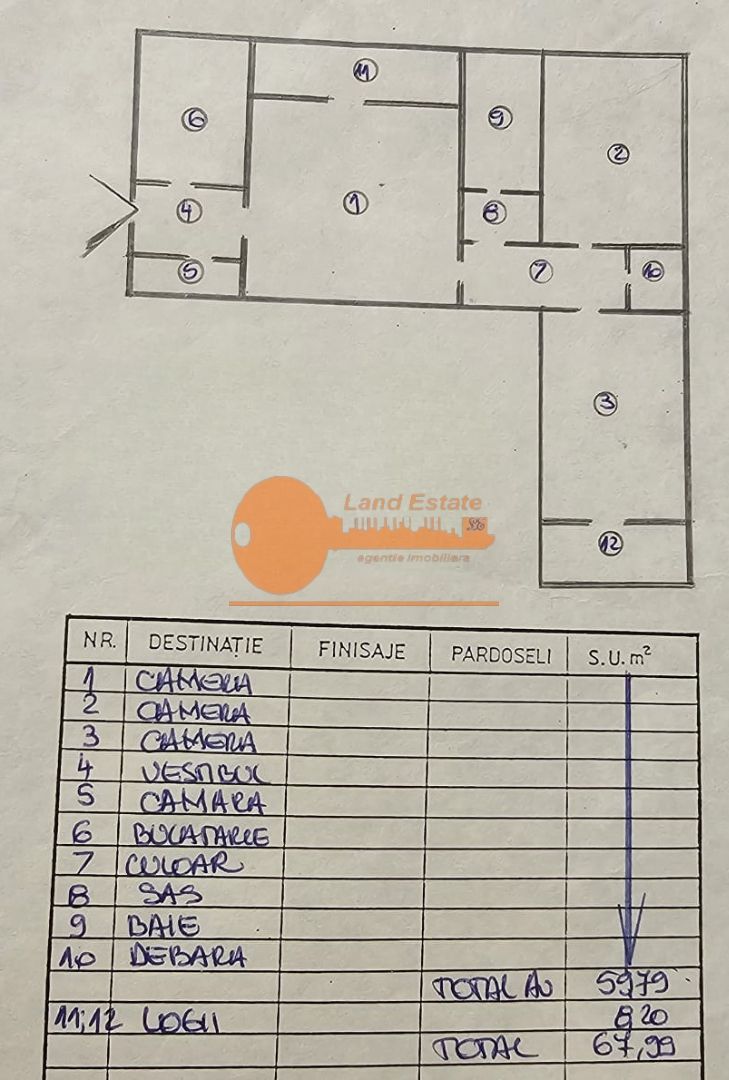 11
6
9
2
1
4
8
5
7
10
3
Land Estate
agentie imobiliara
12
NR. DESTINAȚIE FINISAJE PARDOSELI S.U. m²
1 CAMERA
2 CAMERA
3 CAMERA
4 VESTIBUL
5 CAMARA
6 BUCATARIE
7 CULOAR
8 SAS
9 BAIE
10 DEBARA
TOTAL AU 59,79
11,12 LOGII 8,20
TOTAL 67,99